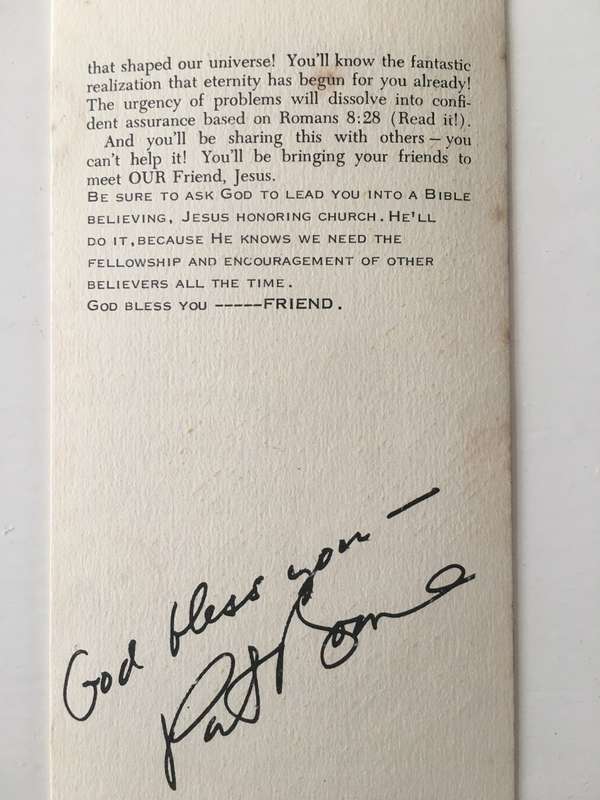 that shaped our universe! You'll know the fantastic
realization that eternity has begun for you already!
The urgency of problems will dissolve into confi-
dent assurance based on Romans 8:28 (Read it!).
And you'll be sharing this with others — you
can't help it! You'll be bringing your friends to
meet OUR Friend, Jesus.
BE SURE TO ASK GOD TO LEAD YOU INTO A BIBLE
BELIEVING, JESUS HONORING CHURCH. HE'LL
DO IT, BECAUSE HE KNOWS WE NEED THE
FELLOWSHIP AND ENCOURAGEMENT OF OTHER
BELIEVERS ALL THE TIME.
GOD BLESS YOU -----FRIEND.
God bless you —
Pat Boone